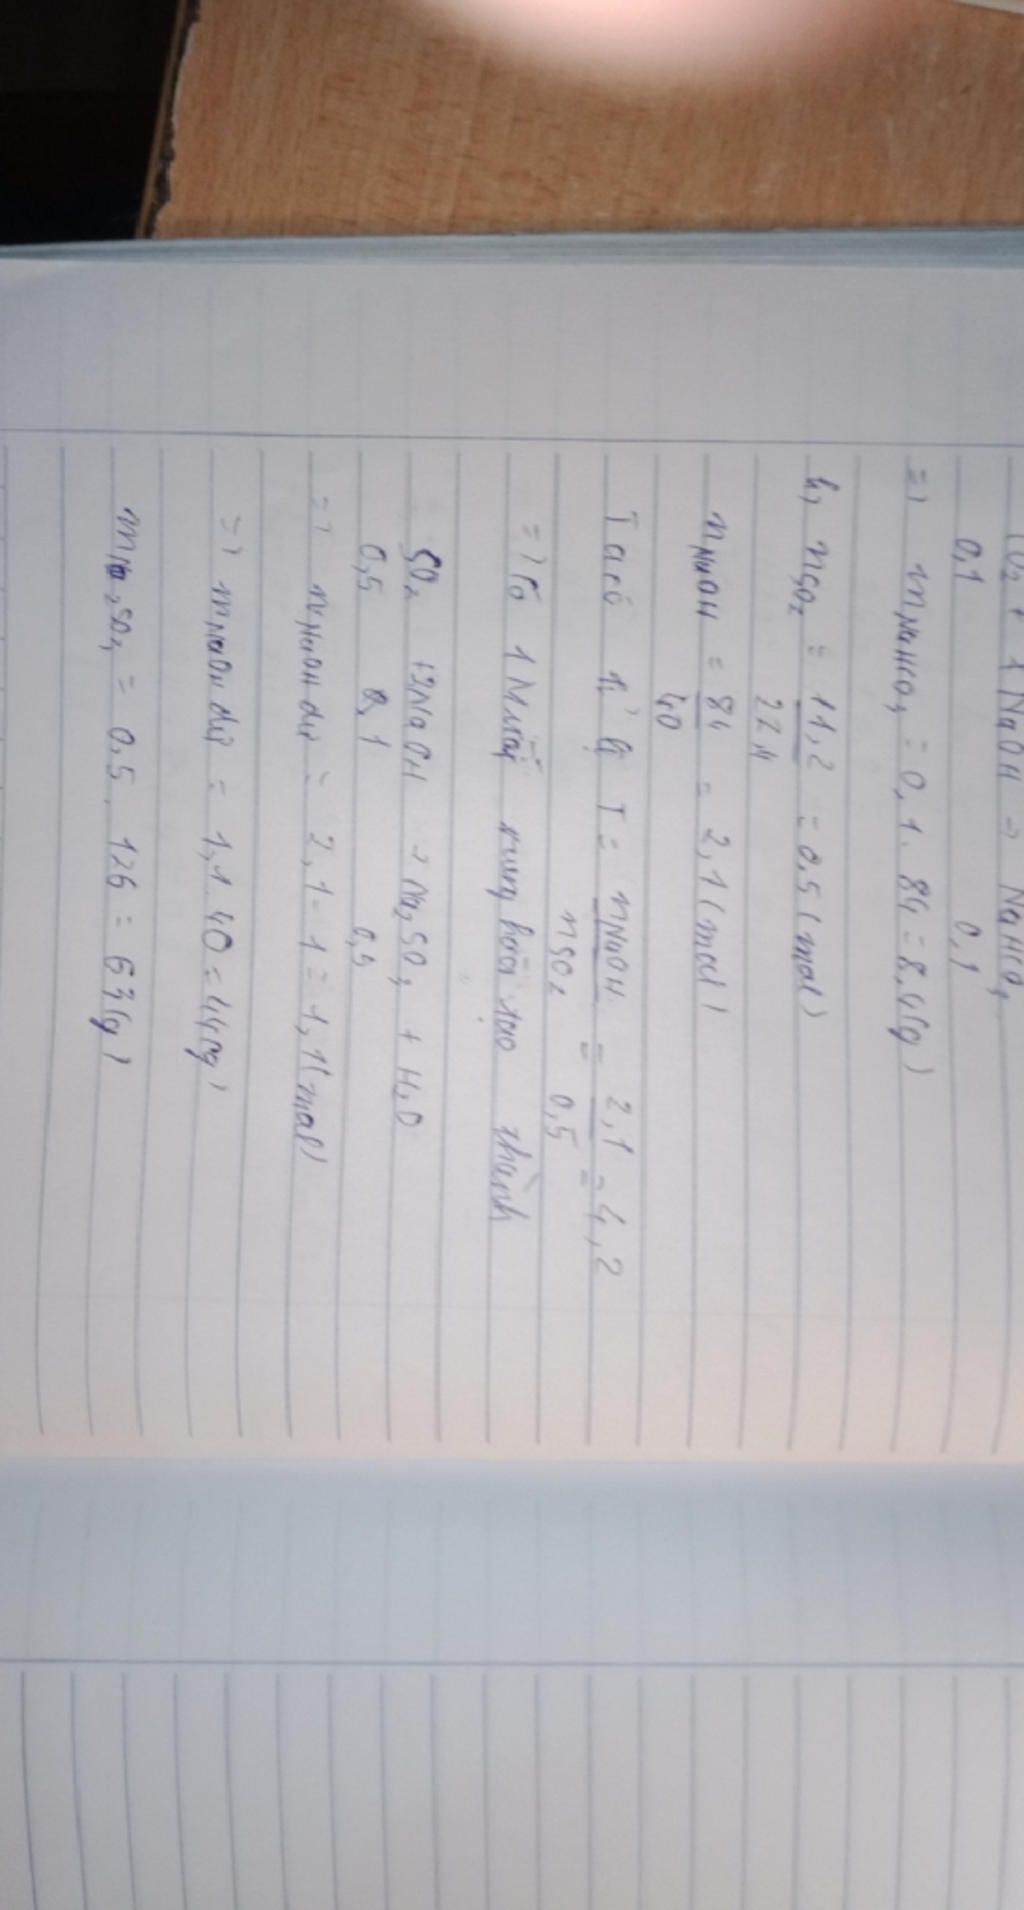 CO2 + 1 NaOH → NaHCO3
0,1 0,1
=) mNaHCO3 = 0,1. 84 = 8,4(g)
b, nSO2 = 11,2/22,4 = 0,5 (mol)
nNaOH = 84/40 = 2,1 (mol)
Ta có tỉ lệ T = nNaOH/nSO2 = 2,1/0,5 = 4,2
=) Có 1 Muối trung hoà tạo thành
SO2 + 2NaOH → Na2SO3 + H2O
0,5 1 0,5
=) nNaOH dư = 2,1 - 1 = 1,1 (mol)
=) mNaOH dư = 1,1. 40 = 44(g)
mNa2SO3 = 0,5. 126 = 63(g)